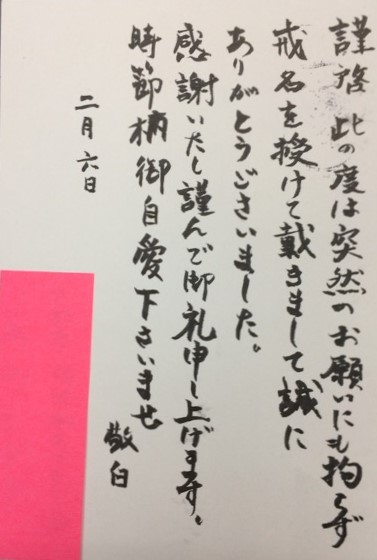 謹啓 此の度は突然のお願いにも拘らず
戒名を授けて戴きまして誠に
ありがとうございました。
感謝いたし謹んで御礼申し上げます。
時節柄御自愛下さいませ
敬白
二月六日